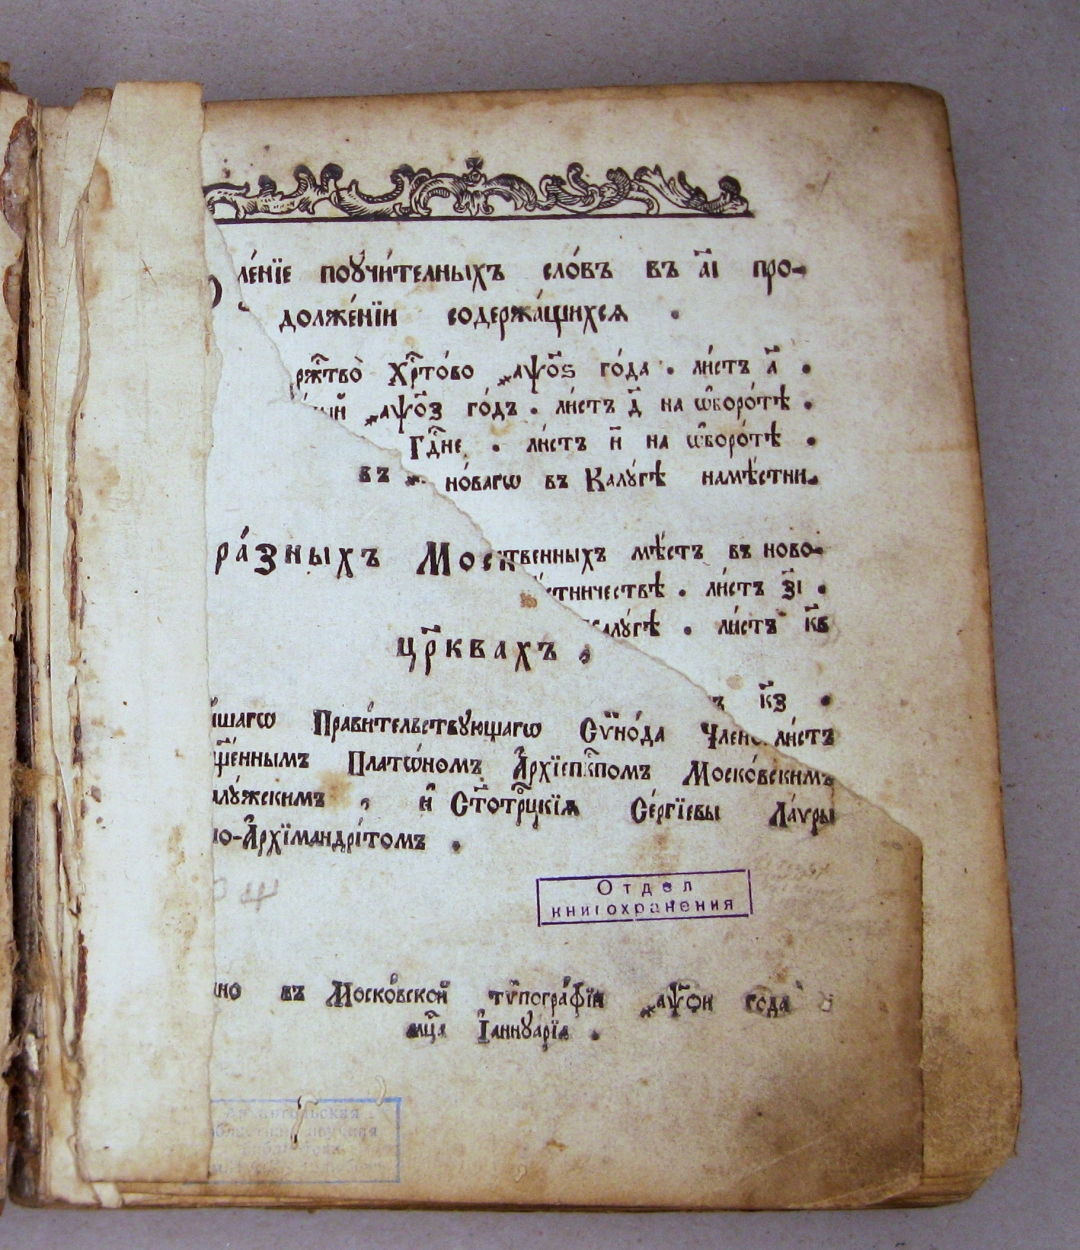 ле́нїе поꙋчи́телныхъ сло́въ въ а҃і про-
долже́нїи содержа́щихсѧ .
ржⷭ҇тво̀ Хрⷭ҇то́во ҂аѱ҃оѕ го́да . ли́стъ а҃ .
҂аѱ҃оз го́дъ . ли́стъ д҃ на ѡ҆боро́тѣ .
Гдⷭ҇не . ли́стъ и҃ на ѡ҆боро́тѣ .
въ но́вагѡ въ Калꙋ́гѣ намѣ́стни-
ра́зныхъ Мос твенныхъ мѣ́стъ въ ново-
ѣ́стничествѣ . ли́стъ з҃і .
алꙋ́гѣ . ли́стъ к҃в
цр҃квахъ ,
ъ к҃з .
йшагѡ Прави́тельствꙋющагѡ Сѷно́да Члено ли́стъ
щ҃е́ннымъ Платѡ́номъ А҆рхїепⷭ҇кпомъ Моско́вскимъ
алꙋ́жскимъ , и҆ Ст҃отро́ицкїѧ Се́ргїевы Ла́ѵры
но-А҆рхїмандрі́томъ .
Отдел
книгохранения
но въ Моско́вской тѷпогра́фїи ҂аѱ҃ои го́да
мцⷭ҇а І҆аннꙋарїѧ .
Архангельская
областная научная
библиотека